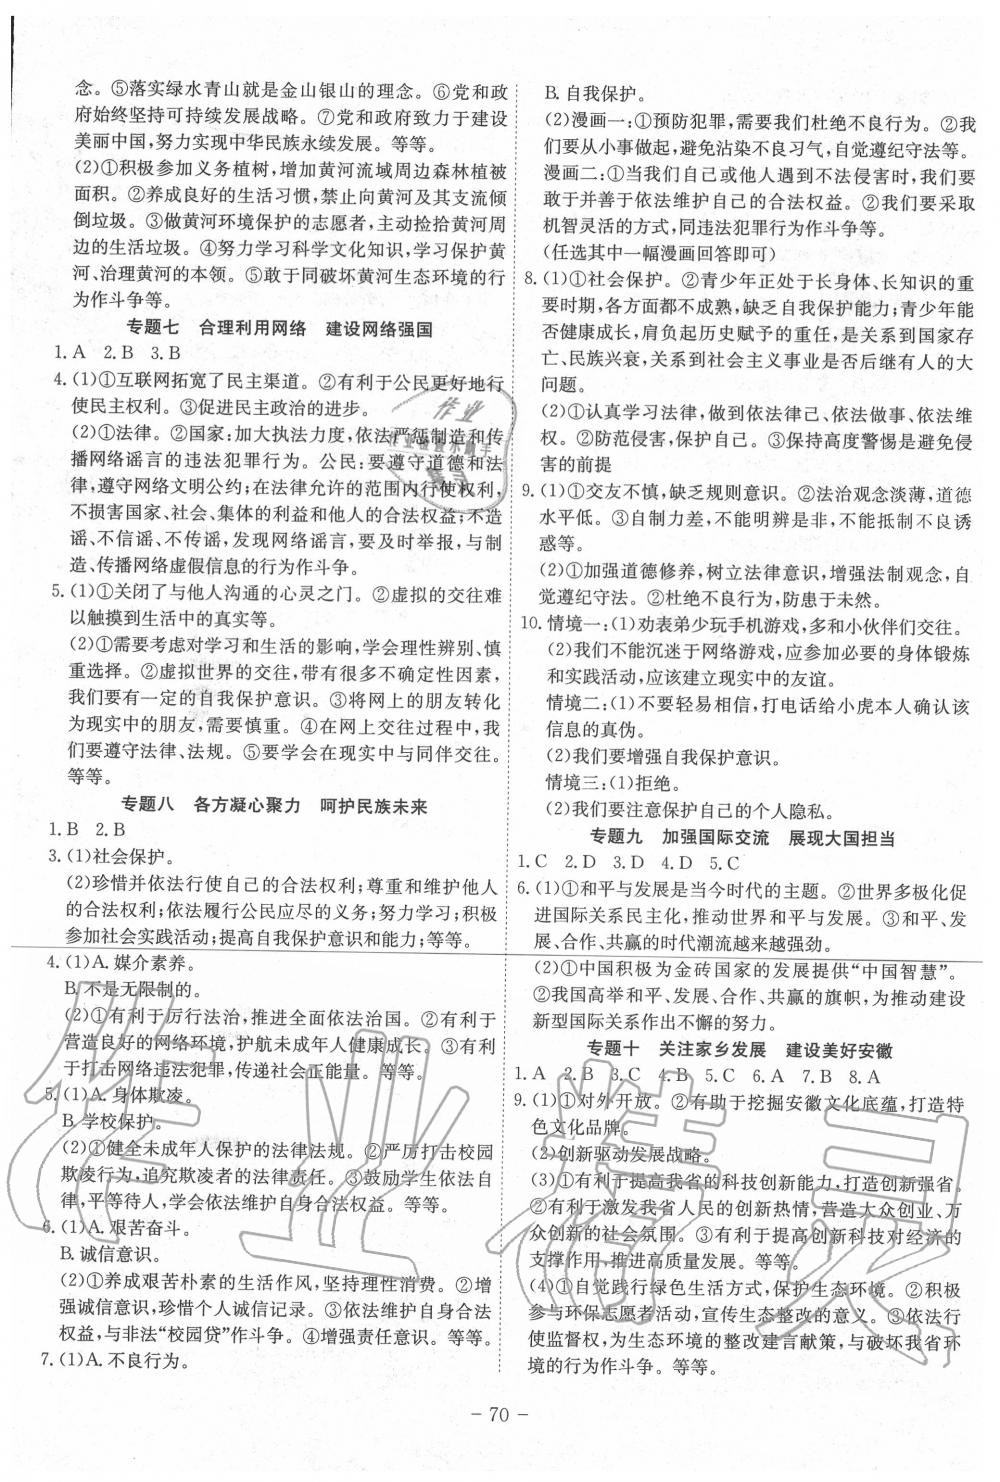 念。⑤落实绿水青山就是金山银山的理念。⑥党和政
府始终坚持可持续发展战略。⑦党和政府致力于建设
美丽中国,努力实现中华民族永续发展。等等。
(2)①积极参加义务植树,增加黄河流域周边森林植被
面积。②养成良好的生活习惯,禁止向黄河及其支流倾
倒垃圾。③做黄河环境保护的志愿者,主动捡拾黄河周
边的生活垃圾。④努力学习科学文化知识,学习保护黄
河、治理黄河的本领。⑤敢于同破坏黄河生态环境的行
为作斗争等。
专题七 合理利用网络 建设网络强国
1. A 2. B 3. B
4. (1)①互联网拓宽了民主渠道。②有利于公民更好地行
使民主权利。③促进民主政治的进步。
(2)①法律。②国家:加大执法力度,依法严惩制造和传
播网络谣言的违法犯罪行为。公民:要遵守道德和法
律,遵守网络文明公约;在法律允许的范围内行使权利,
不损害国家、社会、集体的利益和他人的合法权益;不造
谣、不信谣、不传谣,发现网络谣言,要及时举报,与制
造、传播网络虚假信息的行为作斗争。
5. (1)①关闭了与他人沟通的心灵之门。②虚拟的交往难
以触摸到生活中的真实等。
(2)①需要考虑对学习和生活的影响,学会理性辨别、慎
重选择。②虚拟世界的交往,带有很多不确定性因素,
我们要有一定的自我保护意识。③将网上的朋友转化
为现实中的朋友,需要慎重。④在网上交往过程中,我
们要遵守法律、法规。⑤要学会在现实中与同伴交往。
等等。
专题八 各方凝心聚力 呵护民族未来
1. B 2. B
3. (1)社会保护。
(2)珍惜并依法行使自己的合法权利;尊重和维护他人
的合法权利;依法履行公民应尽的义务;努力学习;积极
参加社会实践活动;提高自我保护意识和能力;等等。
4. (1)A. 媒介素养。
B. 不是无限制的。
(2)①有利于厉行法治,推进全面依法治国。②有利于
营造良好的网络环境,护航未成年人健康成长。③有利
于打击网络违法犯罪,传递社会正能量。等等。
5. (1)A. 身体欺凌。
B. 学校保护。
(2)①健全未成年人保护的法律法规。②严厉打击校园
欺凌行为,追究欺凌者的法律责任。③鼓励学生依法自
律,平等待人,学会依法维护自身合法权益。等等。
6. (1)A. 艰苦奋斗。
B. 诚信意识。
(2)①养成艰苦朴素的生活作风,坚持理性消费。②增
强诚信意识,珍惜个人诚信记录。③依法维护自身合法
权益,与非法“校园贷”作斗争。④增强责任意识。等等。
7. (1)A. 不良行为。
B. 自我保护。
(2)漫画一:①预防犯罪,需要我们杜绝不良行为。②我
们要从小事做起,避免沾染不良习气,自觉遵纪守法等。
漫画二:①当我们自己或他人遇到不法侵害时,我们要
敢于并善于依法维护自己的合法权益。②我们要采取
机智灵活的方式,同违法犯罪行为作斗争等。
(任选其中一幅漫画回答即可)
8. (1)①社会保护。②青少年正处于长身体、长知识的重
要时期,各方面都不成熟,缺乏自我保护能力;青少年能
否健康成长,肩负起历史赋予的重任,是关系到国家存
亡、民族兴衰,关系到社会主义事业是否后继有人的大
问题。
(2)①认真学习法律,做到依法律己、依法做事、依法维
权。②防范侵害,保护自己。③保持高度警惕是避免侵
害的前提
9. (1)①交友不慎,缺乏规则意识。②法治观念淡薄,道德
水平低。③自制力差,不能明辨是非,不能抵制不良诱
惑等。
(2)①加强道德修养,树立法律意识,增强法制观念,自
觉遵纪守法。②杜绝不良行为,防患于未然。
10. 情境一:(1)劝表弟少玩手机游戏,多和小伙伴们交往。
(2)我们不能沉迷于网络游戏,应参加必要的身体锻炼
和实践活动,应该建立现实中的友谊。
情境二:(1)不要轻易相信,打电话给小虎本人确认该
信息的真伪。
(2)我们要增强自我保护意识。
情境三:(1)拒绝。
(2)我们要注意保护自己的个人隐私。
专题九 加强国际交流 展现大国担当
1. C 2. D 3. D 4. D 5. C
6. (1)①和平与发展是当今时代的主题。②世界多极化促
进国际关系民主化,推动世界和平与发展。③和平、发
展、合作、共赢的时代潮流越来越强劲。
(2)①中国积极为金砖国家的发展提供“中国智慧”。
②我国高举和平、发展、合作、共赢的旗帜,为推动建设
新型国际关系作出不懈的努力。
专题十 关注家乡发展 建设美好安徽
1. A 2. B 3. C 4. B 5. C 6. A 7. B 8. A
9. (1)①对外开放。②有助于挖掘安徽文化底蕴,打造特
色文化品牌。
(2)创新驱动发展战略。
(3)①有利于提高我省的科技创新能力,打造创新强省。
②有利于激发我省人民的创新热情,营造大众创业、万
众创新的社会氛围。③有利于提高创新科技对经济的
支撑作用,推进高质量发展。等等。
(4)①自觉践行绿色生活方式,保护生态环境。②积极
参与环保志愿者活动,宣传生态整改的意义。③依法行
使监督权,为生态环境的整改建言献策,与破坏我省环
境的行为作斗争。等等。
- 70 -
作业精灵